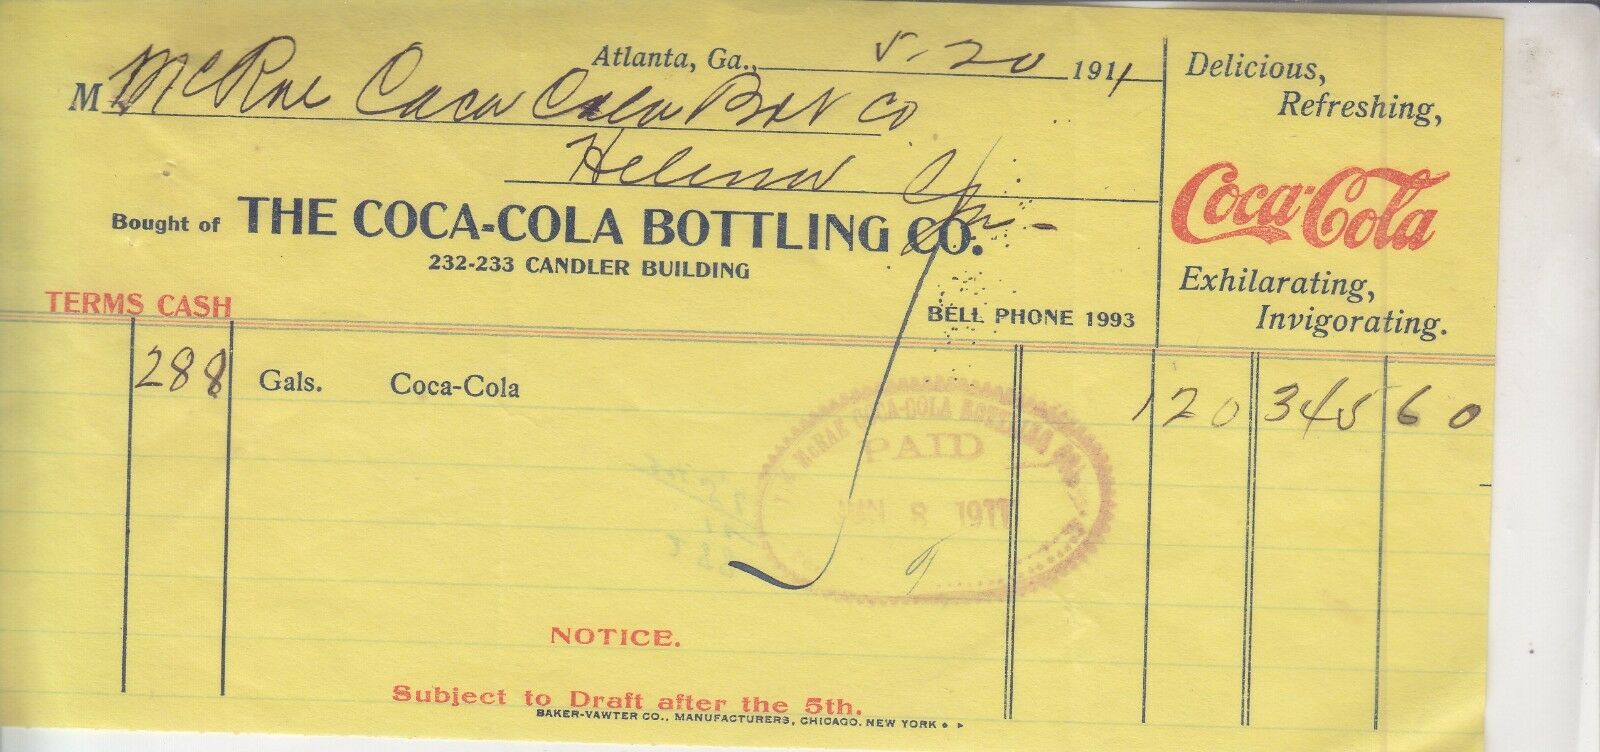 Atlanta, Ga., 5-20 1911
M McRae Coca Cola Bot Co
Helena Ga-
Bought of THE COCA-COLA BOTTLING CO.
232-233 CANDLER BUILDING
TERMS CASH
BELL PHONE 1993
Delicious,
Refreshing,
Coca-Cola
Exhilarating,
Invigorating.
288 Gals. Coca-Cola 120 345 60
McRAE COCA-COLA
PAID
8 1911
NOTICE.
Subject to Draft after the 5th.
BAKER-VAWTER CO., MANUFACTURERS, CHICAGO. NEW YORK